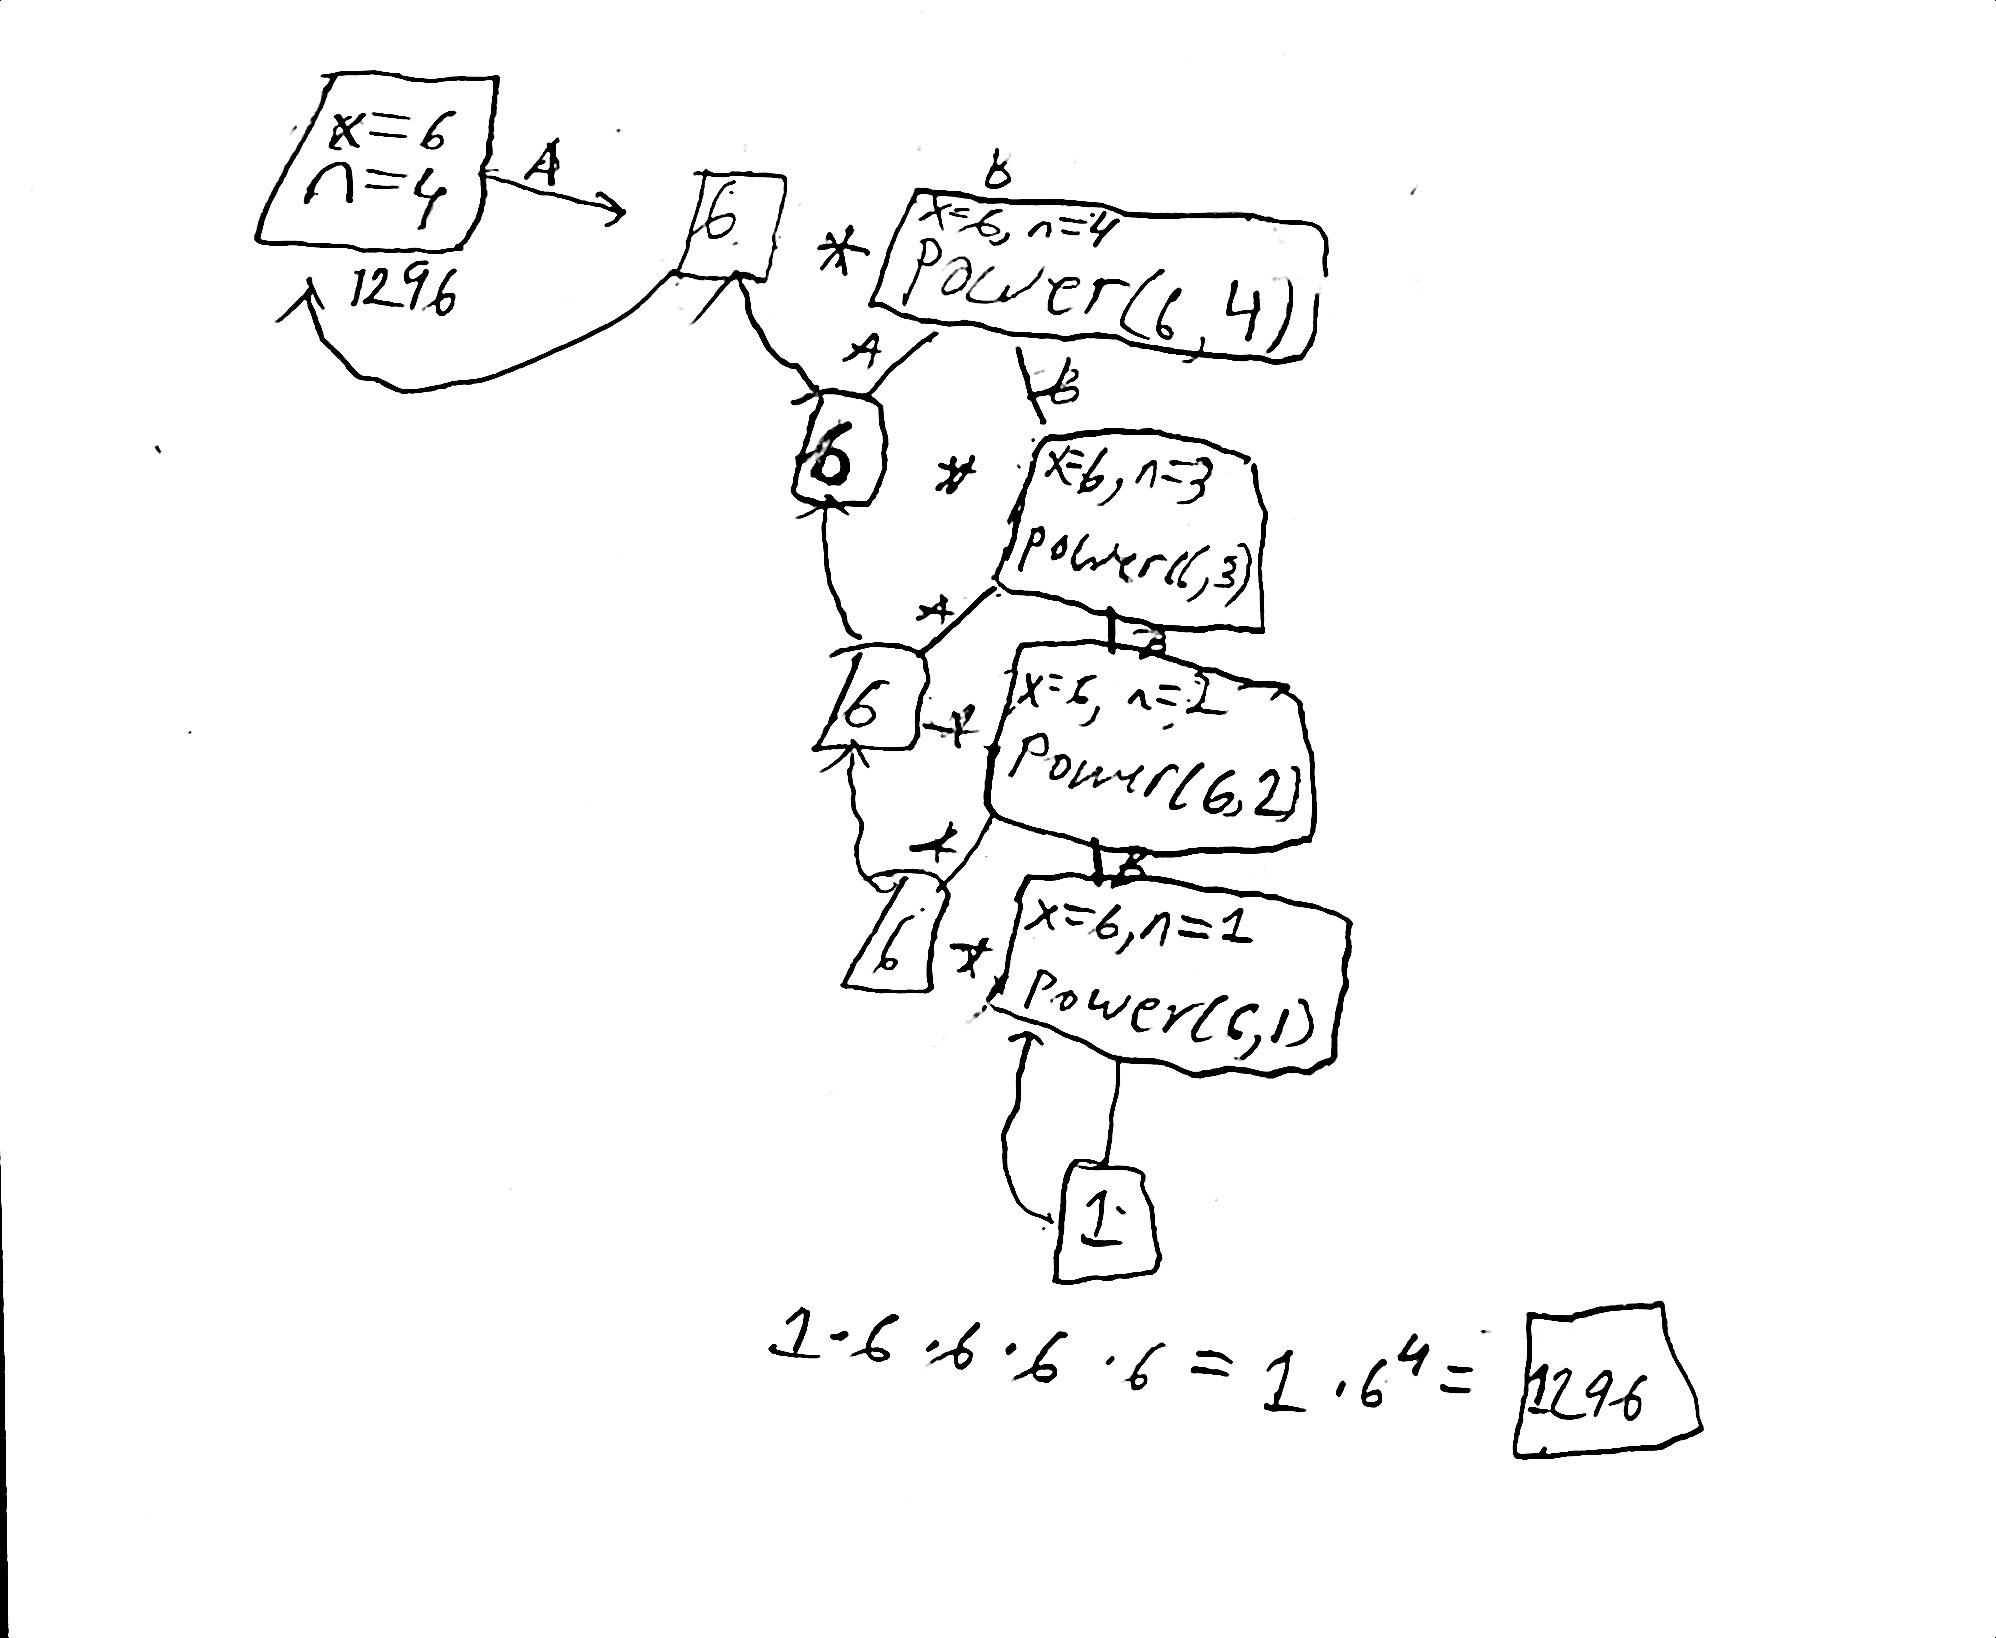 x=6
n=4
A
1296
6
*
B
x=6, n=4
Power(6,4)
A
B
6
*
x=6, n=3
Power(6,3)
A
B
6
*
x=6, n=2
Power(6,2)
A
B
6
*
x=6, n=1
Power(6,1)
1
1·6·6·6·6=1·6⁴=1296